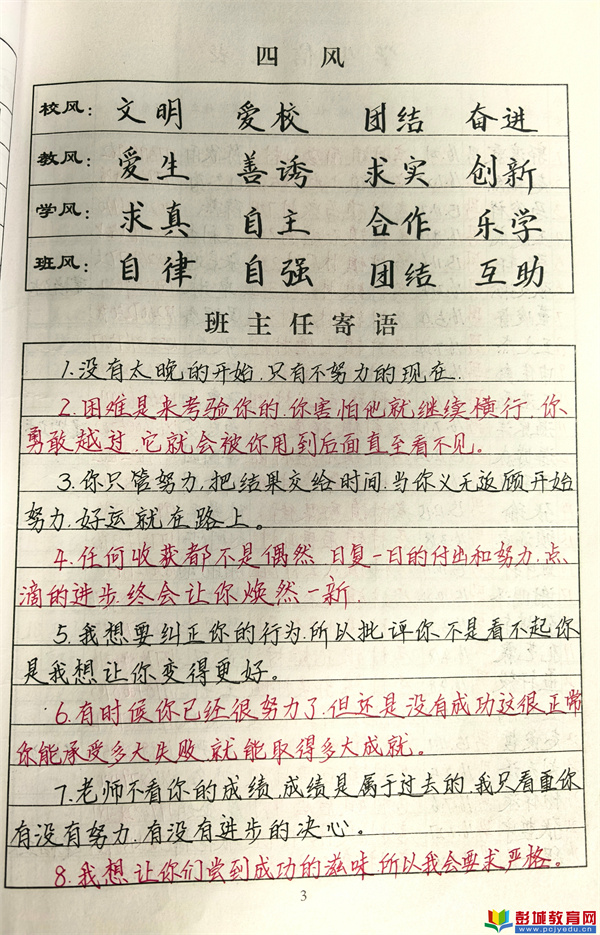 四 风
校风: 文明 爱校 团结 奋进
教风: 爱生 善诱 求实 创新
学风: 求真 自主 合作 乐学
班风: 自律 自强 团结 互助
班主任寄语
1.没有太晚的开始.只有不努力的现在.
2.困难是来考验你的.你害怕他就继续横行.你
勇敢越过.它就会被你甩到后面直至看不见。
3.你只管努力.把结果交给时间.当你义无返顾开始
努力.好运就在路上。
4.任何收获都不是偶然.日复一日的付出和努力.点
滴的进步.终会让你焕然一新.
5.我想要纠正你的行为.所以批评你.不是看不起你
是我想让你变得更好。
6.有时候你已经很努力了.但还是没有成功这很正常
你能承受多大失败.就能取得多大成就。
7.老师不看你的成绩.成绩是属于过去的.我只看重你
有没有努力.有没有进步的决心。
8.我想让你们尝到成功的滋味.所以我会要求严格。
3
彭城教育网
www.pcjyedu.cn